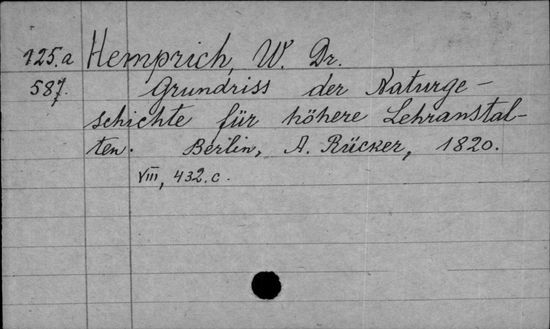 125.a Hemprich, W. Dr.
587. Grundriss der Naturge-
schichte für höhere Lehranstal-
ten. Berlin, A. Rücker, 1820.
VIII, 432.c.